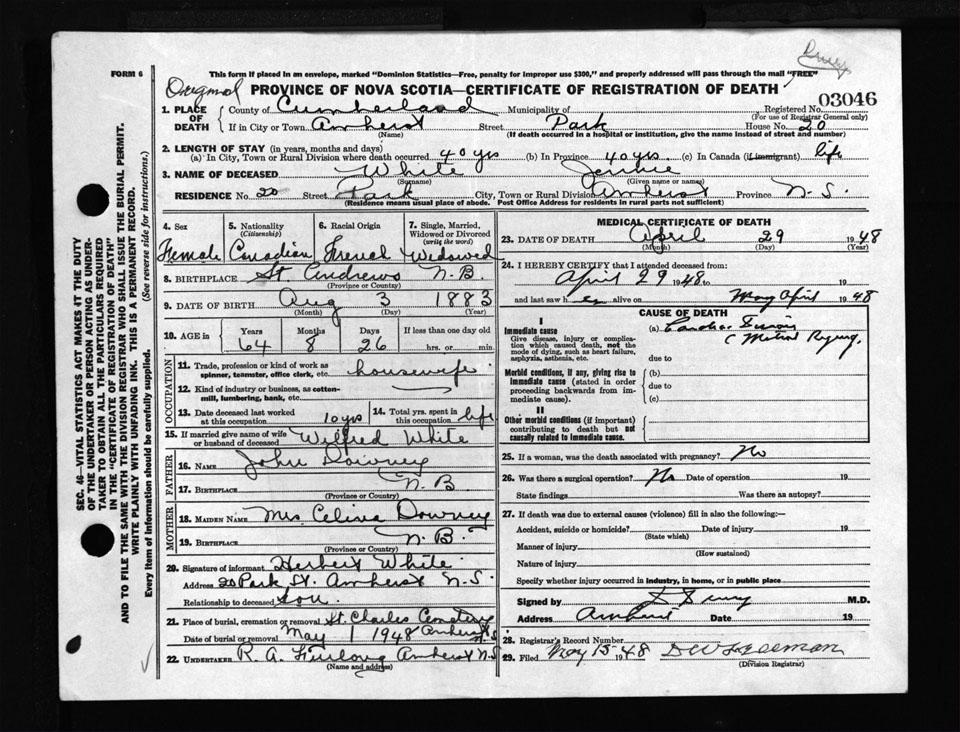 FORM 6
This form if placed in an envelope, marked "Dominion Statistics—Free, penalty for improper use $300," and properly addressed will pass through the mail "FREE"
Original PROVINCE OF NOVA SCOTIA—CERTIFICATE OF REGISTRATION OF DEATH
03046
1. PLACE OF DEATH County of Cumberland Municipality of Registered No.
(For use of Registrar General only)
If in City or Town Amherst Street Park House No. 20
(Name) (If death occurred in a hospital or institution, give the name instead of street and number)
2. LENGTH OF STAY (in years, months and days)
(a) In City, Town or Rural Division where death occurred 40 yrs (b) In Province 40 yrs. (c) In Canada (if immigrant) life
3. NAME OF DECEASED White Jennie
(Surname) (Given name or names)
RESIDENCE No. 20 Street Park City, Town or Rural Division Amherst Province N.S.
(Residence means usual place of abode. Post Office Address for residents in rural parts not sufficient)
4. Sex 5. Nationality 6. Racial Origin 7. Single, Married, Widowed or Divorced
(Citizenship) (write the word)
Female Canadian French Widowed
8. BIRTHPLACE St Andrews N.B.
(Province or Country)
9. DATE OF BIRTH Aug 3 1883
(Month) (Day) (Year)
10. AGE in Years Months Days If less than one day old
64 8 26 hrs. or min.
OCCUPATION
11. Trade, profession or kind of work as spinner, teamster, office clerk, etc. housewife
12. Kind of industry or business, as cotton-mill, lumbering, bank, etc.
13. Date deceased last worked at this occupation 10 yrs 14. Total yrs. spent in this occupation life
15. If married give name of wife or husband of deceased Wilfred White
FATHER
16. NAME John Downey
17. BIRTHPLACE N.B
(Province or Country)
MOTHER
18. MAIDEN NAME Mrs Celina Downey
19. BIRTHPLACE N.B.
(Province or Country)
20. Signature of informant Herbert White
Address 20 Park St. Amherst N.S.
Relationship to deceased son
21. Place of burial, cremation or removal St. Charles Cemetery
Date of burial or removal May 1 1948 Amherst N.S
22. UNDERTAKER R. A. Furlong Amherst N.S
(Name and address)
MEDICAL CERTIFICATE OF DEATH
23. DATE OF DEATH April 29 1948
(Month) (Day)
24. I HEREBY CERTIFY that I attended deceased from
April 29 1948 to
and last saw her alive on May April 1948
CAUSE OF DEATH
I
Immediate cause (a)
Give disease, injury or complication which caused death, not the mode of dying, such as heart failure, asphyxia, asthenia, etc.
due to
Morbid conditions, if any, giving rise to immediate cause (stated in order proceeding backwards from immediate cause).
(b)
due to
(c)
II
Other morbid conditions (if important) contributing to death but not causally related to immediate cause.
25. If a woman, was the death associated with pregnancy? No
26. Was there a surgical operation? No Date of operation 19
State findings Was there an autopsy?
27. If death was due to external causes (violence) fill in also the following:—
Accident, suicide or homicide? Date of injury 19
(State which)
Manner of injury
(How sustained)
Nature of injury
Specify whether injury occurred in industry, in home, or in public place
Signed by M.D.
Address Amherst Date 19
28. Registrar's Record Number
29. Filed May 15 1948 D W Freeman
(Division Registrar)
SEC. 46—VITAL STATISTICS ACT MAKES IT THE DUTY
OF THE UNDERTAKER OR PERSON ACTING AS UNDER-
TAKER TO OBTAIN ALL THE PARTICULARS REQUIRED
IN THE "CERTIFICATE OF REGISTRATION OF DEATH"
AND TO FILE THE SAME WITH THE DIVISION REGISTRAR WHO SHALL ISSUE THE BURIAL PERMIT.
WRITE PLAINLY WITH UNFADING INK. THIS IS A PERMANENT RECORD.
Every item of information should be carefully supplied. (See reverse side for instructions.)